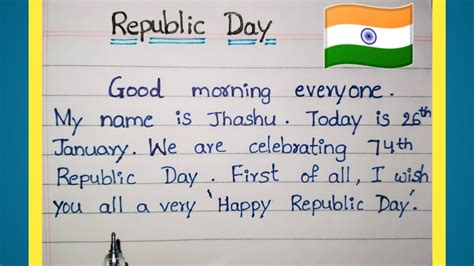 Republic Day
Good morning everyone.
My name is Jhashu. Today is 26th
January. We are celebrating 74th
Republic Day. First of all, I wish
you all a very 'Happy Republic Day'.